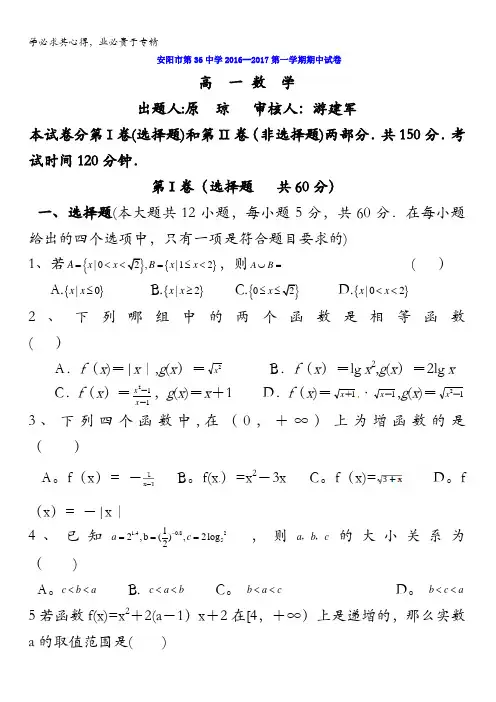 学必求其心得，业必贵于专精
安阳市第36中学2016—2017第一学期期中试卷
高 一 数 学
出题人:原 琼 审核人：游建军
本试卷分第Ⅰ卷(选择题)和第Ⅱ卷（非选择题)两部分．共150分．考
试时间120分钟．
第Ⅰ卷（选择题 共60分）
一、选择题(本大题共12小题，每小题5分，共60分．在每小题
给出的四个选项中，只有一项是符合题目要求的)
1、若A={x|0<x<√2},B={x|1≤x<2}，则A∪B= ( )
A.{x|x≤0} B.{x|x≥2} C.{0≤x≤√2} D.{x|0<x<2}
2、下列哪组中的两个函数是相等函数
( )
A．f（x）=|x｜,g(x）=√x² B．f（x）=lg x²,g(x）=2lg x
C．f（x）=(x²-1)/(x-1)，g(x)=x＋1 D．f(x）=√x+1·√x-1,g(x)=√x²-1
3、下列四个函数中,在（0，＋∞）上为增函数的是
（ ）
A。f（x）= －1/(x-1) B。f(x）=x²－3x C。f（x)=√3+x D。f
（x）= －|x｜
4、已知 a=2^1.4,b=(1/2)^-0.8,c=2log₂² ，则 a、b、c 的大小关系为
( )
A。c<b<a B. c<a<b C。 b<a<c D。 b<c<a
5若函数f(x)=x²＋2(a－1）x＋2在[4，＋∞）上是递增的，那么实数
a的取值范围是( )